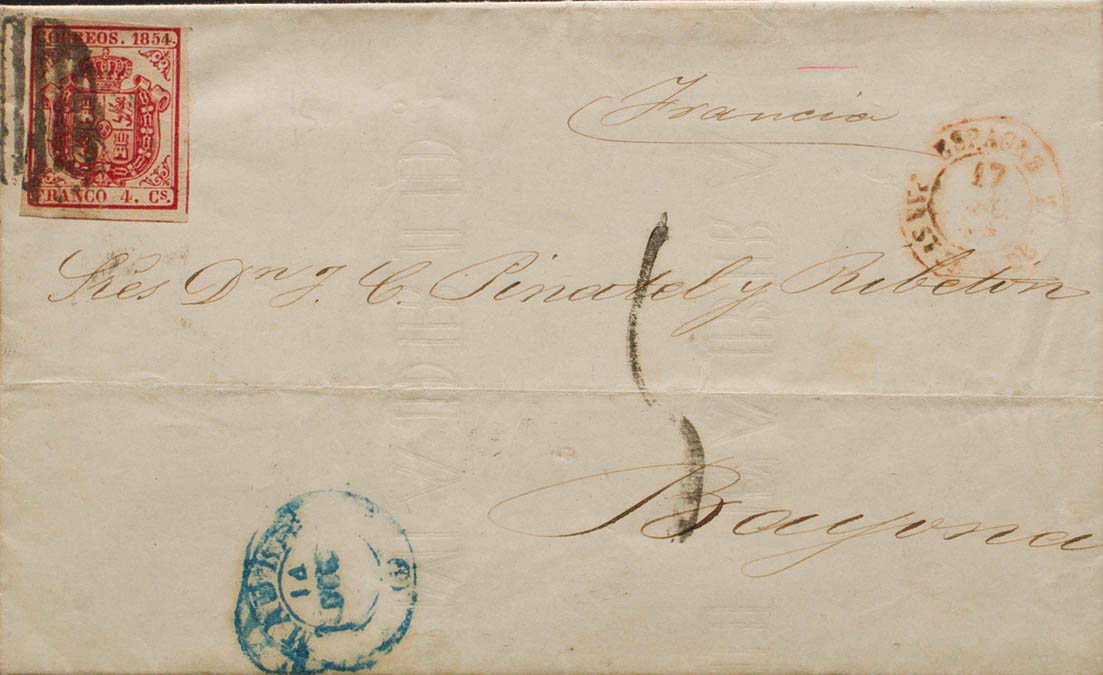 CORREOS. 1854.
FRANCO 4. Cs.
Francia
ESPAGNE
17
Sres Dn J. C. Pinatel y Ribeton
Bayona
14
DIC